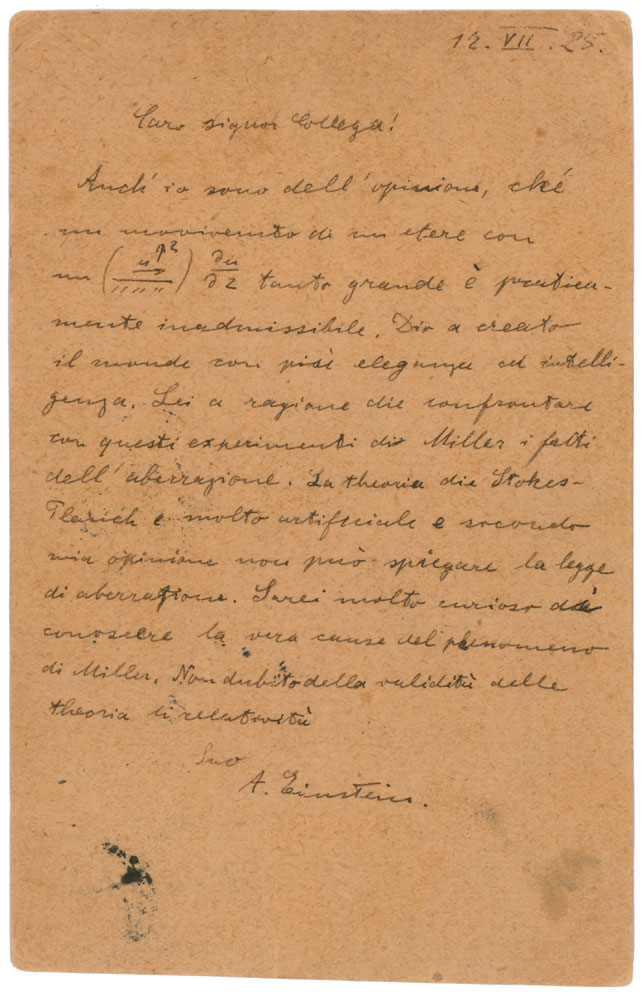 12. VII. 25.
Caro signor Collega!
Anch' io sono dell' opinione, ché
un movivemto di un etere con
un (u z) ∂u/∂z tanto grande è pratica-
mente inadmissibile. Dio a creato
il monde con più eleganza ed intelli-
genza. Lei a ragione die confrontare
con questi experimenti di Miller i fatti
dell' aberrazione. La theoria die Stokes-
e molto artificiale e secondo
mia opinione non può spiegare la legge
di aberrazione. Sarei molto curioso di
conoscere la vera cause del phenomeno
di Miller. Non dubito della validitù delle
theoria di relativitù
Suo
A. Einstein.